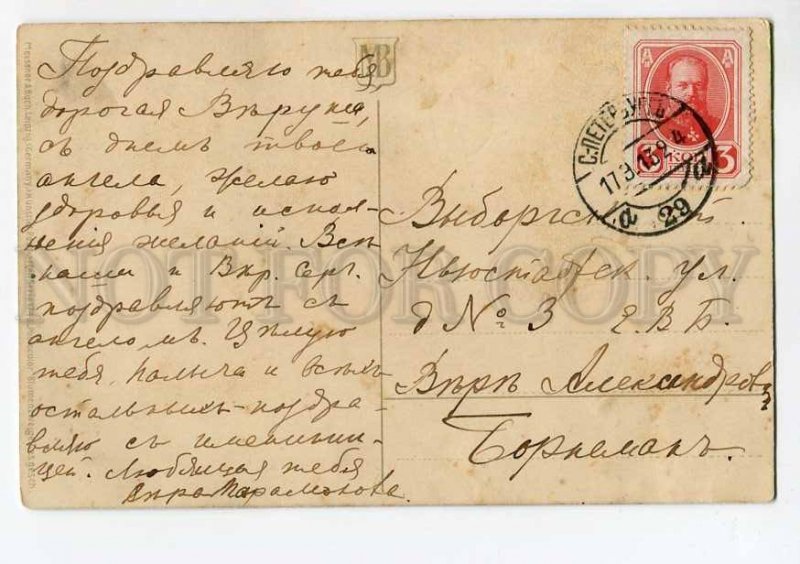 Поздравляю тебя
дорогая Вѣруня,
съ днемъ твоего
ангела, желаю
здоровья и испол-
ненія желаній. Всѣ
наши и Вкр. Серг.
поздравляютъ съ
ангеломъ. Цѣлую
тебя, и всѣхъ
остальныхъ поздра-
вляю съ именинни-
цей. Любящая тебя
Вѣра Парамонова.
МВ
С·ПЕТЕРБУРГЪ
17.9.13
а 29 а
3 КОП 3
Выборгск
Нюстадск. ул.
д № 3 Е. В. Б.
Вѣрѣ Александровнѣ
Борнеманъ.
NOT FOR COPY